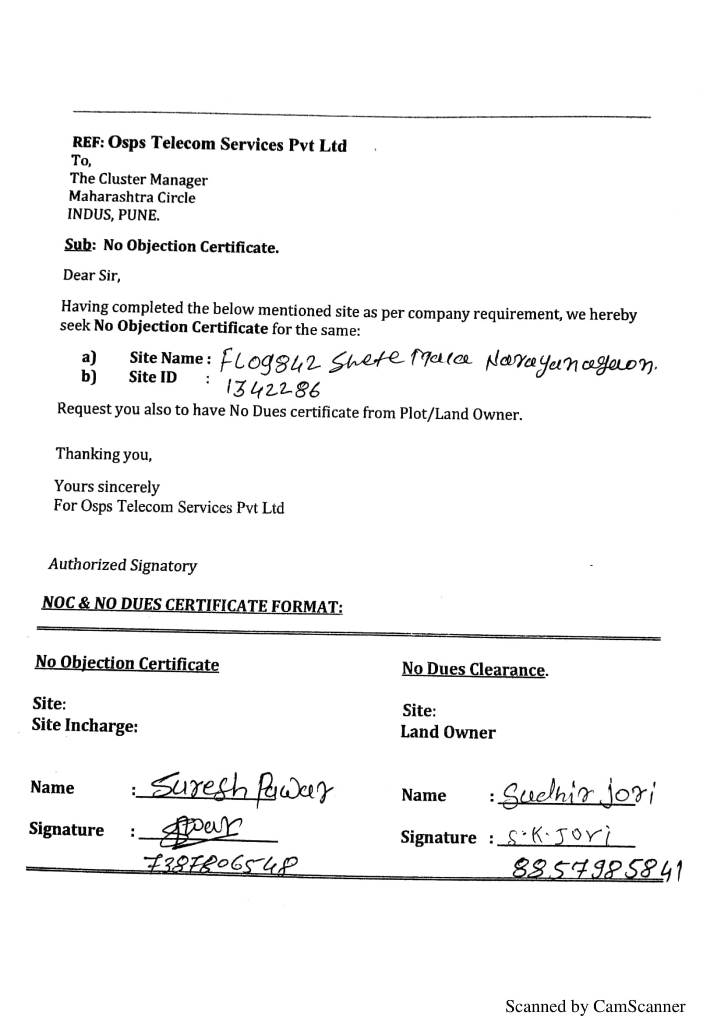 REF: Osps Telecom Services Pvt Ltd
To,
The Cluster Manager
Maharashtra Circle
INDUS, PUNE.
Sub: No Objection Certificate.
Dear Sir,
Having completed the below mentioned site as per company requirement, we hereby
seek No Objection Certificate for the same:
a) Site Name : FL09842 Shete Mala Narayanagaon.
b) Site ID : 1342286
Request you also to have No Dues certificate from Plot/Land Owner.
Thanking you,
Yours sincerely
For Osps Telecom Services Pvt Ltd
Authorized Signatory
NOC & NO DUES CERTIFICATE FORMAT:
No Objection Certificate
Site:
Site Incharge:
Name : Suresh Pawar
Signature :
No Dues Clearance.
Site:
Land Owner
Name : Sudhir Jori
Signature : S.K.Jori
8857985841
Scanned by CamScanner